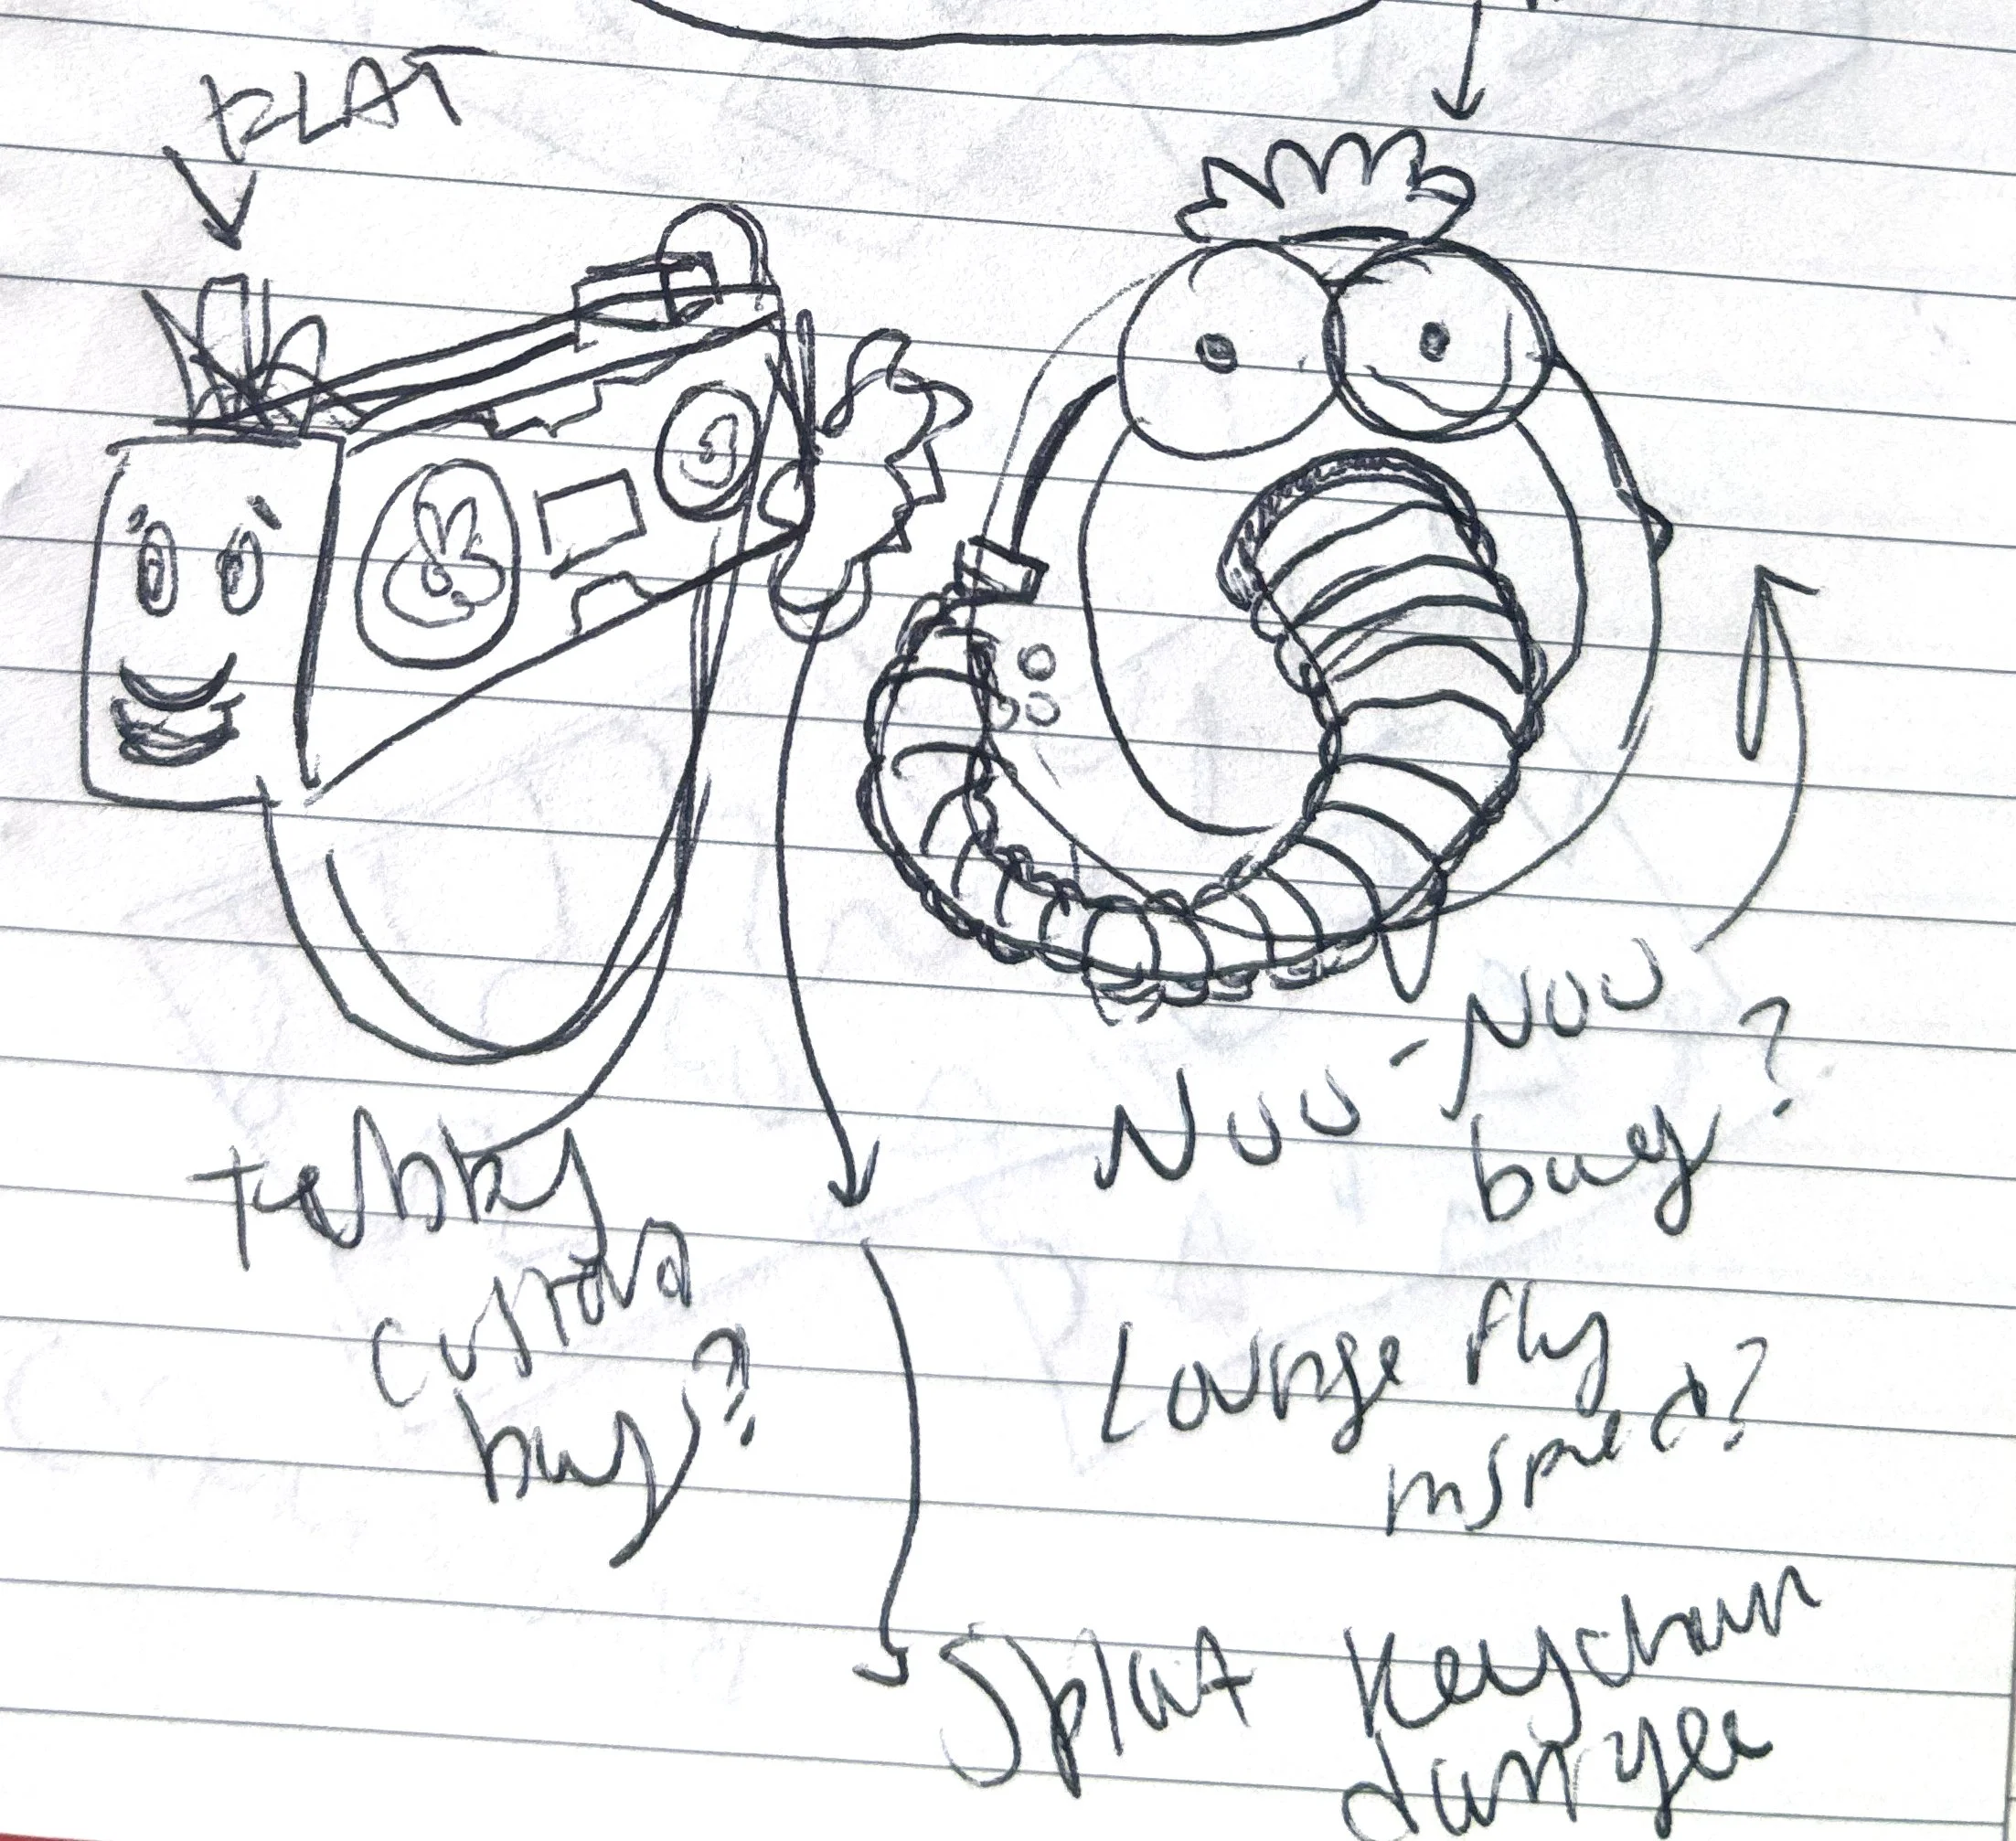 FLAT
Tubby
custard
bag?
Noo-Noo
bag?
Lounge fly
inspired?
Splat Keychain
dangle